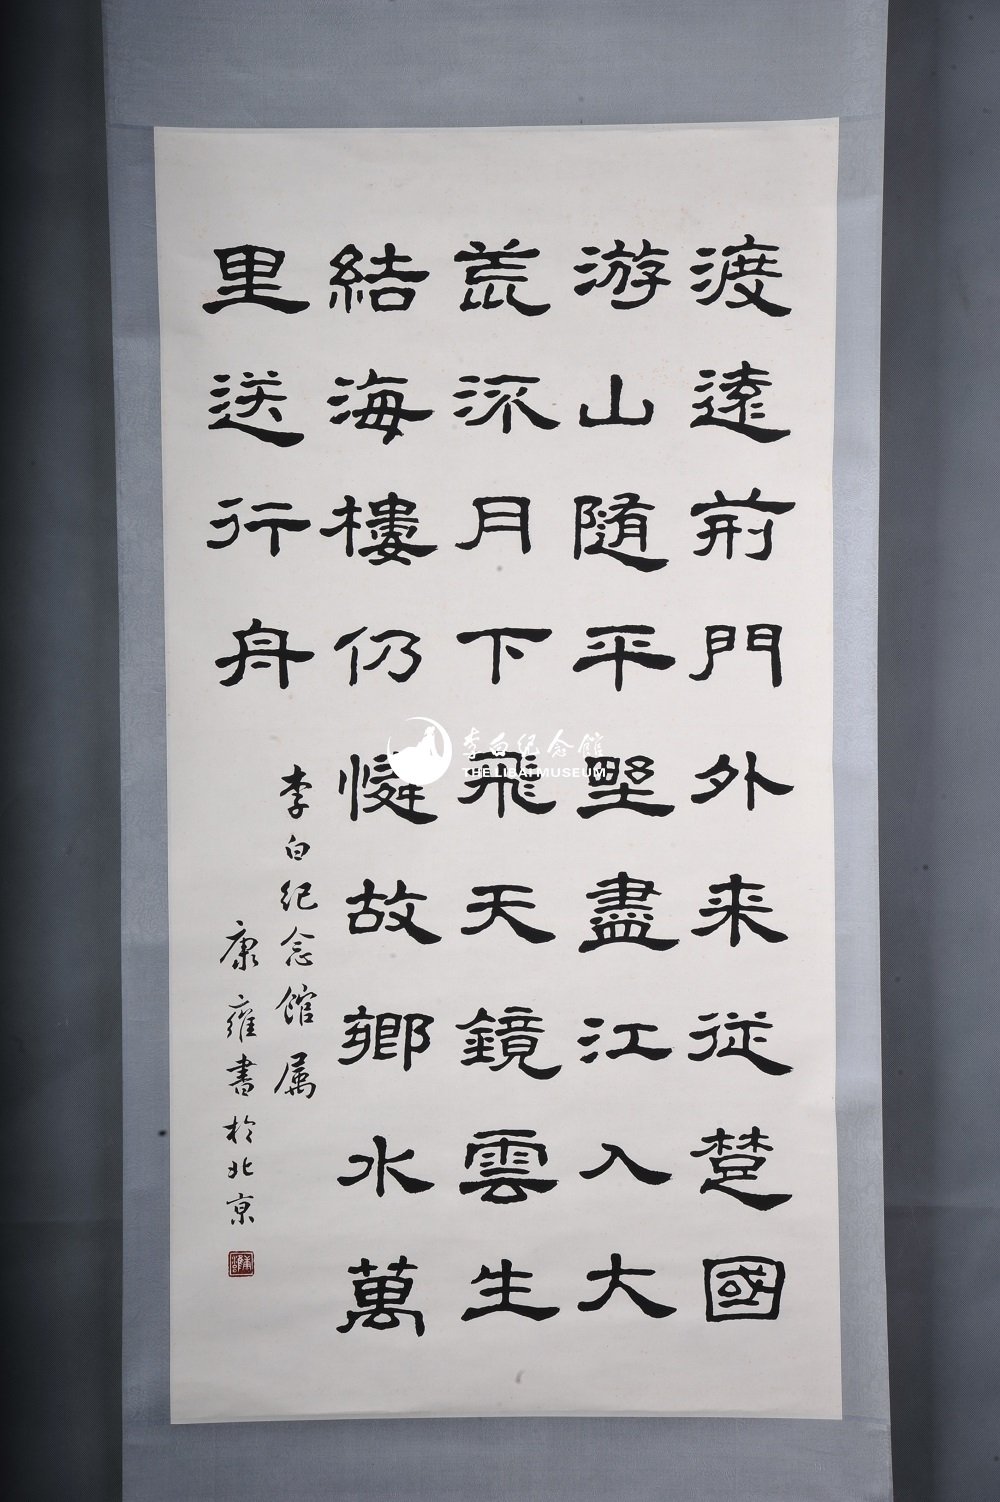 渡遠荊門外来従楚國
游山隨平墅盡江入大
荒流月下飛天鏡雲生
結海樓仍憐故鄉水萬
里送行舟
李白纪念館属
康雍書於北京
李白纪念館
THE LIBAI MUSEUM